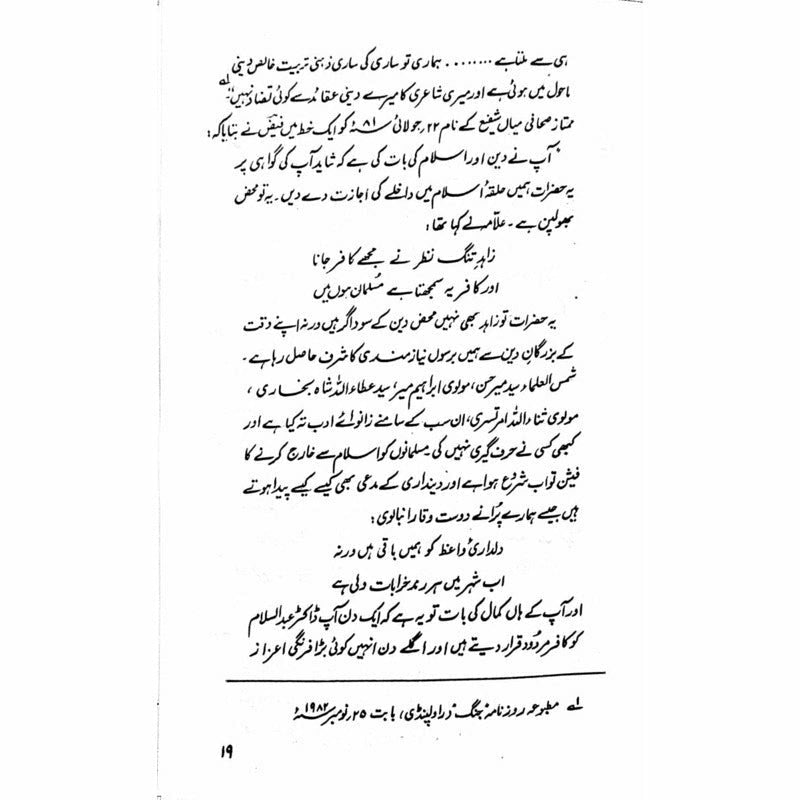 ہی سے ملتا ہے ........ ہماری تو ساری کی ساری ذہنی تربیت خالص دینی
ماحول میں ہوئی ہے اور میری شاعری کا میرے دینی عقائد سے کوئی تضاد نہیں"۔ لے
ممتاز صحافی میاں شفیع کے نام ۲۲؍جولائی ۸۱ء کو ایک خط میں فیضؔ نے بتایا کہ:
"آپ نے دین اور اسلام کی بات کی ہے کہ شاید آپ کی گواہی پر
یہ حضرات ہمیں حلقۂ اسلام میں داخلے کی اجازت دے دیں۔ یہ تو محض
بھولپن ہے۔ علامہ نے کہا تھا:
زاہدِ تنگ نظر نے مجھے کافر جانا
اور کافر یہ سمجھتا ہے مُسلمان ہوں میں
یہ حضرات تو زاہد بھی نہیں محض دین کے سوداگر ہیں ورنہ اپنے وقت
کے بزرگانِ دین سے ہمیں برسوں نیاز مندی کا شرف حاصل رہا ہے۔
شمس العلماء سید میر حسن، مولوی ابراہیم میر، سید عطاء اللہ شاہ بخاری،
مولوی ثناء اللہ امرتسری، ان سب کے سامنے زانوئے ادب تہ کیا ہے اور
کبھی کسی نے حرف گیری نہیں کی مسلمانوں کو اسلام سے خارج کرنے کا
فیشن تو اب شروع ہوا ہے اور دینداری کے مدعی بھی کیسے کیسے پیدا ہوتے
ہیں جیسے ہمارے پُرانے دوست وقار انبالوی:
دلداریٔ واعظ کو ہمیں باقی ہیں ورنہ
اب شہر میں ہر رندِ خرابات ولی ہے
اور آپ کے ہاں کمال کی بات تو یہ ہے کہ ایک دن آپ ڈاکٹر عبدالسلام
کو کافر مردُود قرار دیتے ہیں اور اگلے دن انہیں کوئی بڑا فرنگی اعزاز
لے مطبوعہ روزنامہ "جنگ" راولپنڈی، بابت ۲۵؍نومبر ۱۹۸۲ء
۱۹